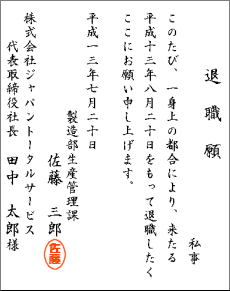 退職願
私事
このたび、一身上の都合により、来たる
平成十三年八月二十日をもって退職したく
ここにお願い申し上げます。
平成一三年七月二十日
製造部生産管理課
佐藤 三郎
佐藤
株式会社ジャパントータルサービス
代表取締役社長 田中 太郎様